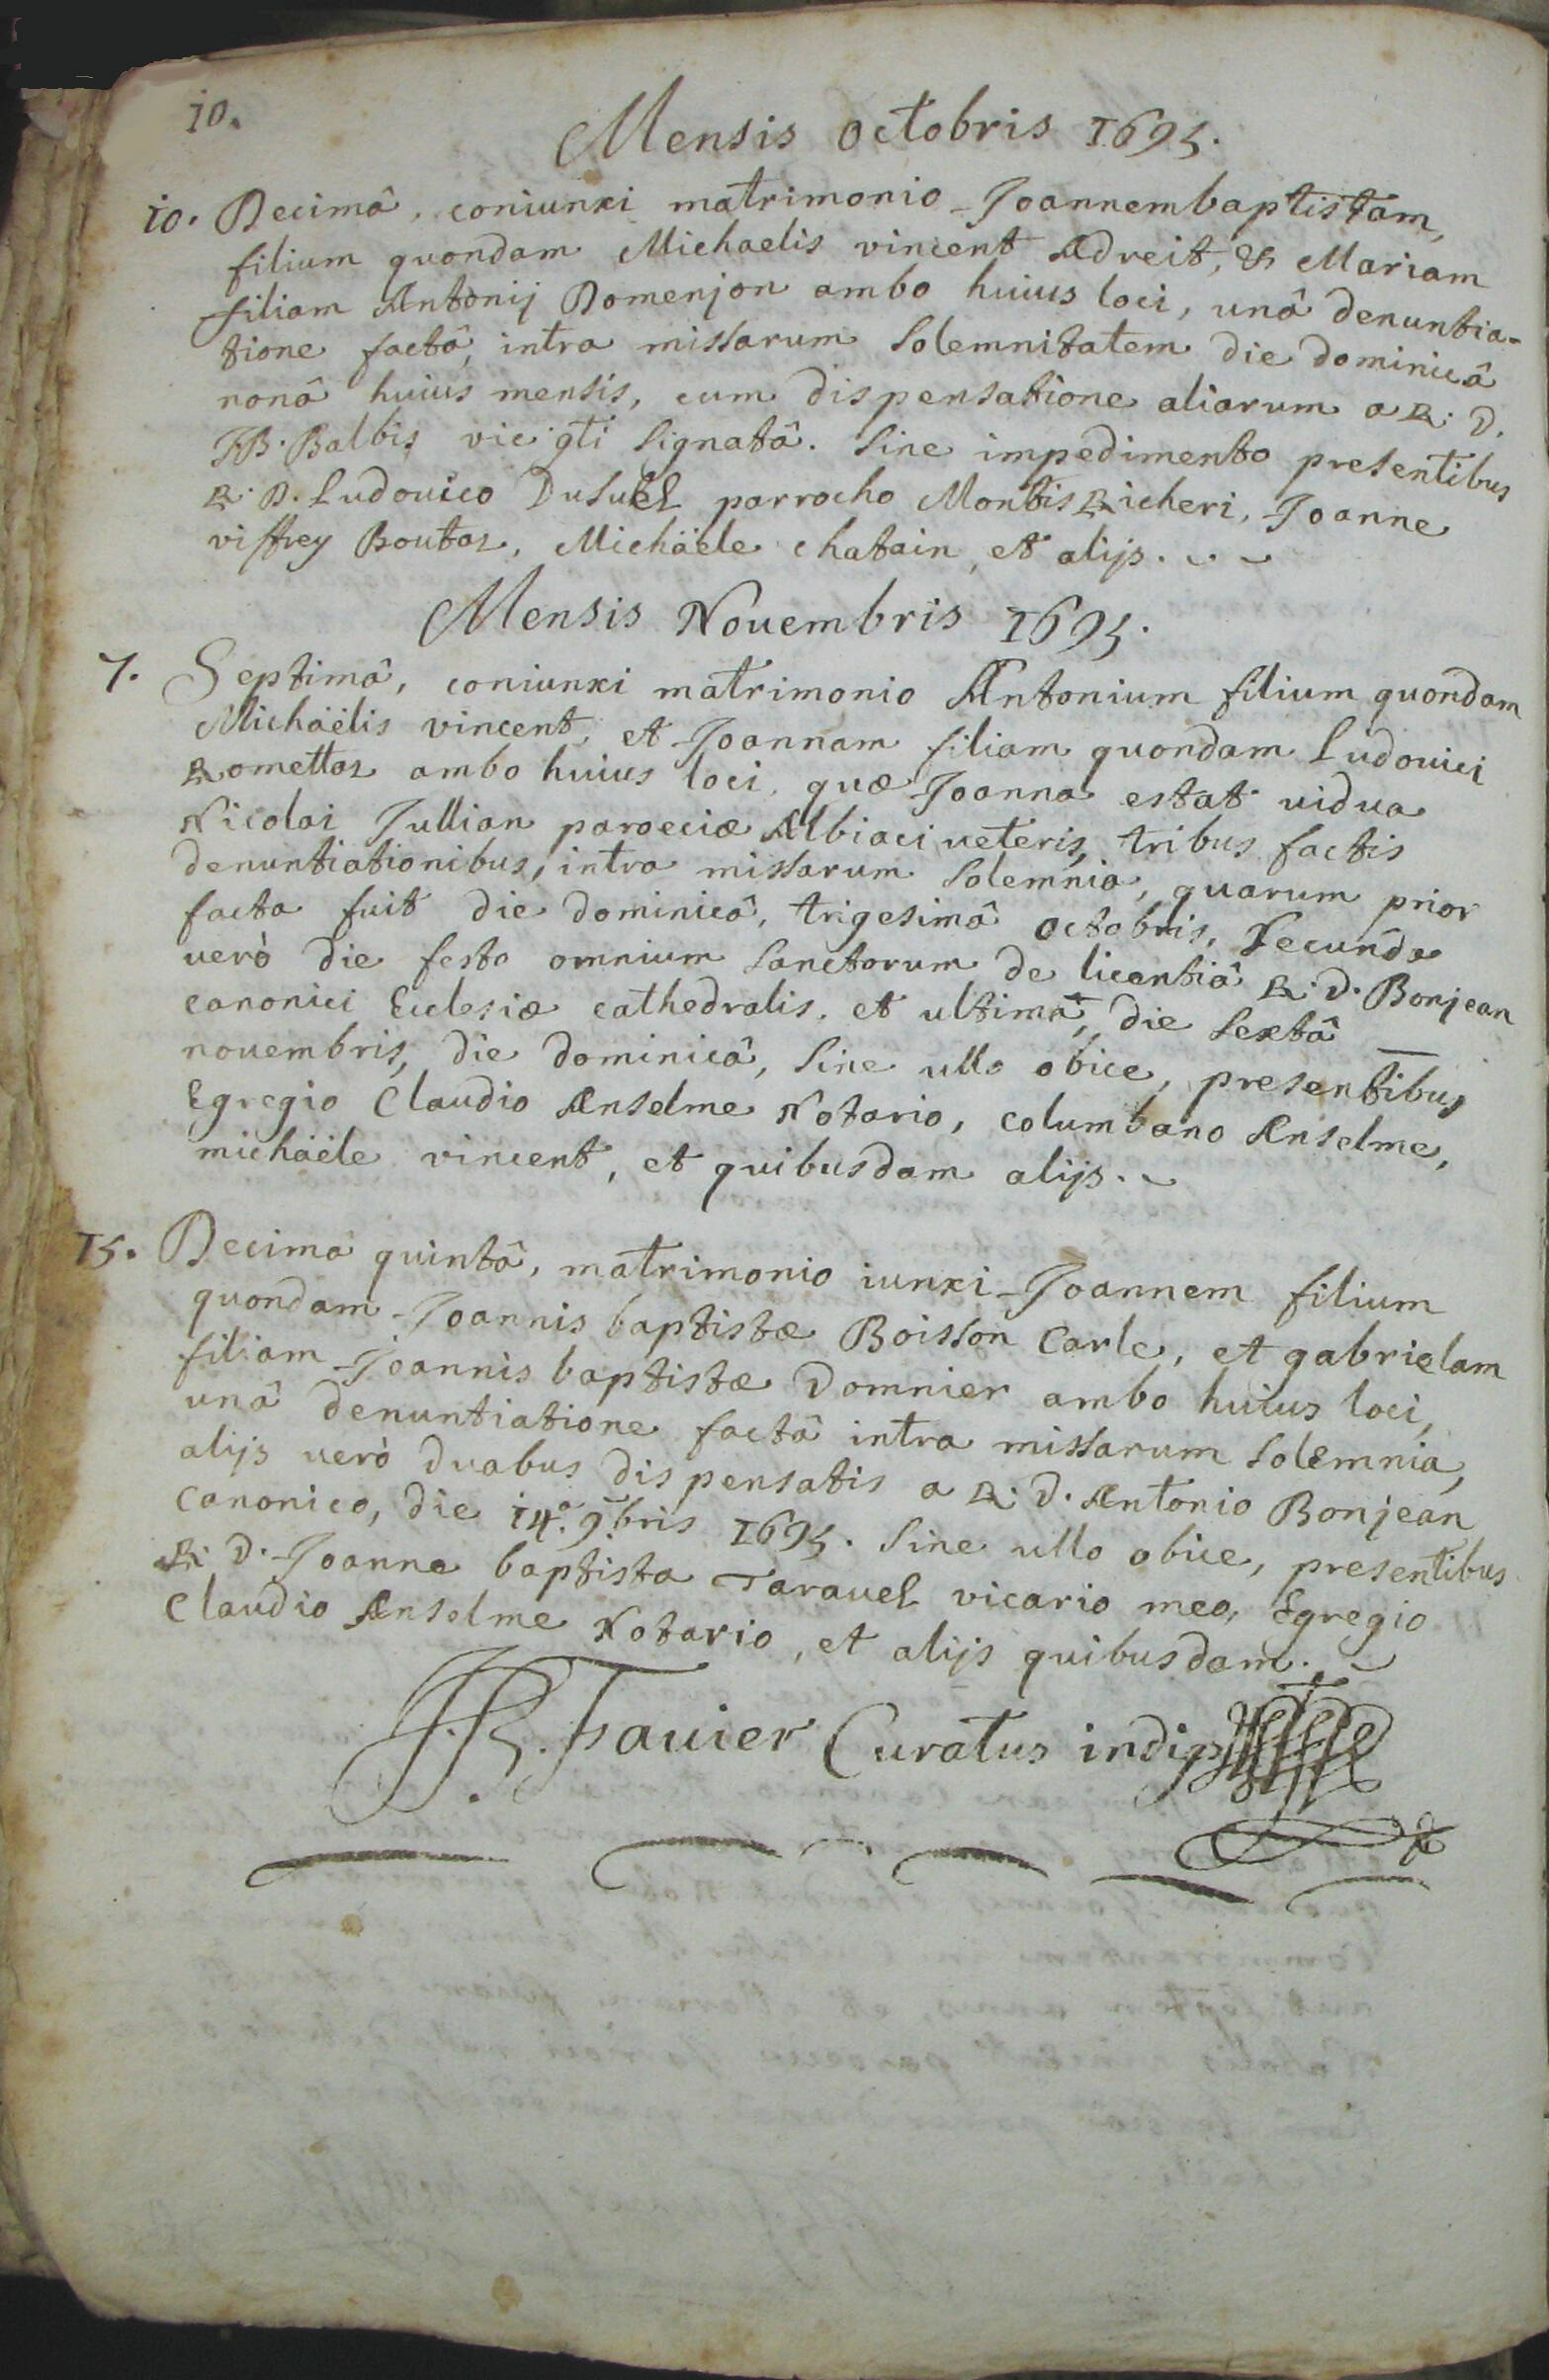 10.
Mensis octobris 1695.
10. Decimâ, coniunxi matrimonio Joannembaptistam,
filium quondam Michaelis vincent Adreit, & Mariam
filiam Antonij Domenjon ambo huius loci, unâ denuntia-
tione factâ, intra missarum solemnitatem die dominicâ
nonâ huius mensis, cum dispensatione aliarum a R: D.
JB. Balbis vic gti signatâ. sine impedimento presentibus
R: D. Ludouico Dusuel parrocho Montis Richeri, Joanne
viffrey Boutaz, Michäele chatain, et alijs.
Mensis Nouembris 1695.
7. Septimâ, coniunxi matrimonio Antonium filium quondam
Michäëlis vincent, et Joannam filiam quondam Ludouici
Romettaz ambo huius loci, quæ Joanna estat uidua
Nicolai Jullian paroeciæ Albiaci ueteris, tribus factis
denuntiationibus, intra missarum solemnia, quarum prior
facta fuit die dominicâ, trigesimâ octobris, secunda
uerò die festo omnium sanctorum de licentiâ R: D. Bonjean
canonici Ecclesiæ cathedralis. et ultima, die sextâ
nouembris, die dominicâ, sine ullo obice, presentibus
Egregio Claudio Anselme Notario, columbano Anselme,
michäële vincent, et quibusdam alijs.
15. Decima quintâ, matrimonio iunxi Joannem filium
quondam Joannis baptistæ Boisson Carle, et gabrielam
filiam Joannis baptistæ Domnier ambo huius loci,
unâ denuntiatione factâ intra missarum solemnia,
alijs uerò duabus dispensatis a R: D. Antonio Bonjean
Canonico, die 14.ª 9.bris 1695. sine ullo obice, presentibus
R: D. Joanne baptista Tarauel vicario meo, Egregio
Claudio Anselme Notario, et alijs quibusdam.
JB. Fauier Curatus